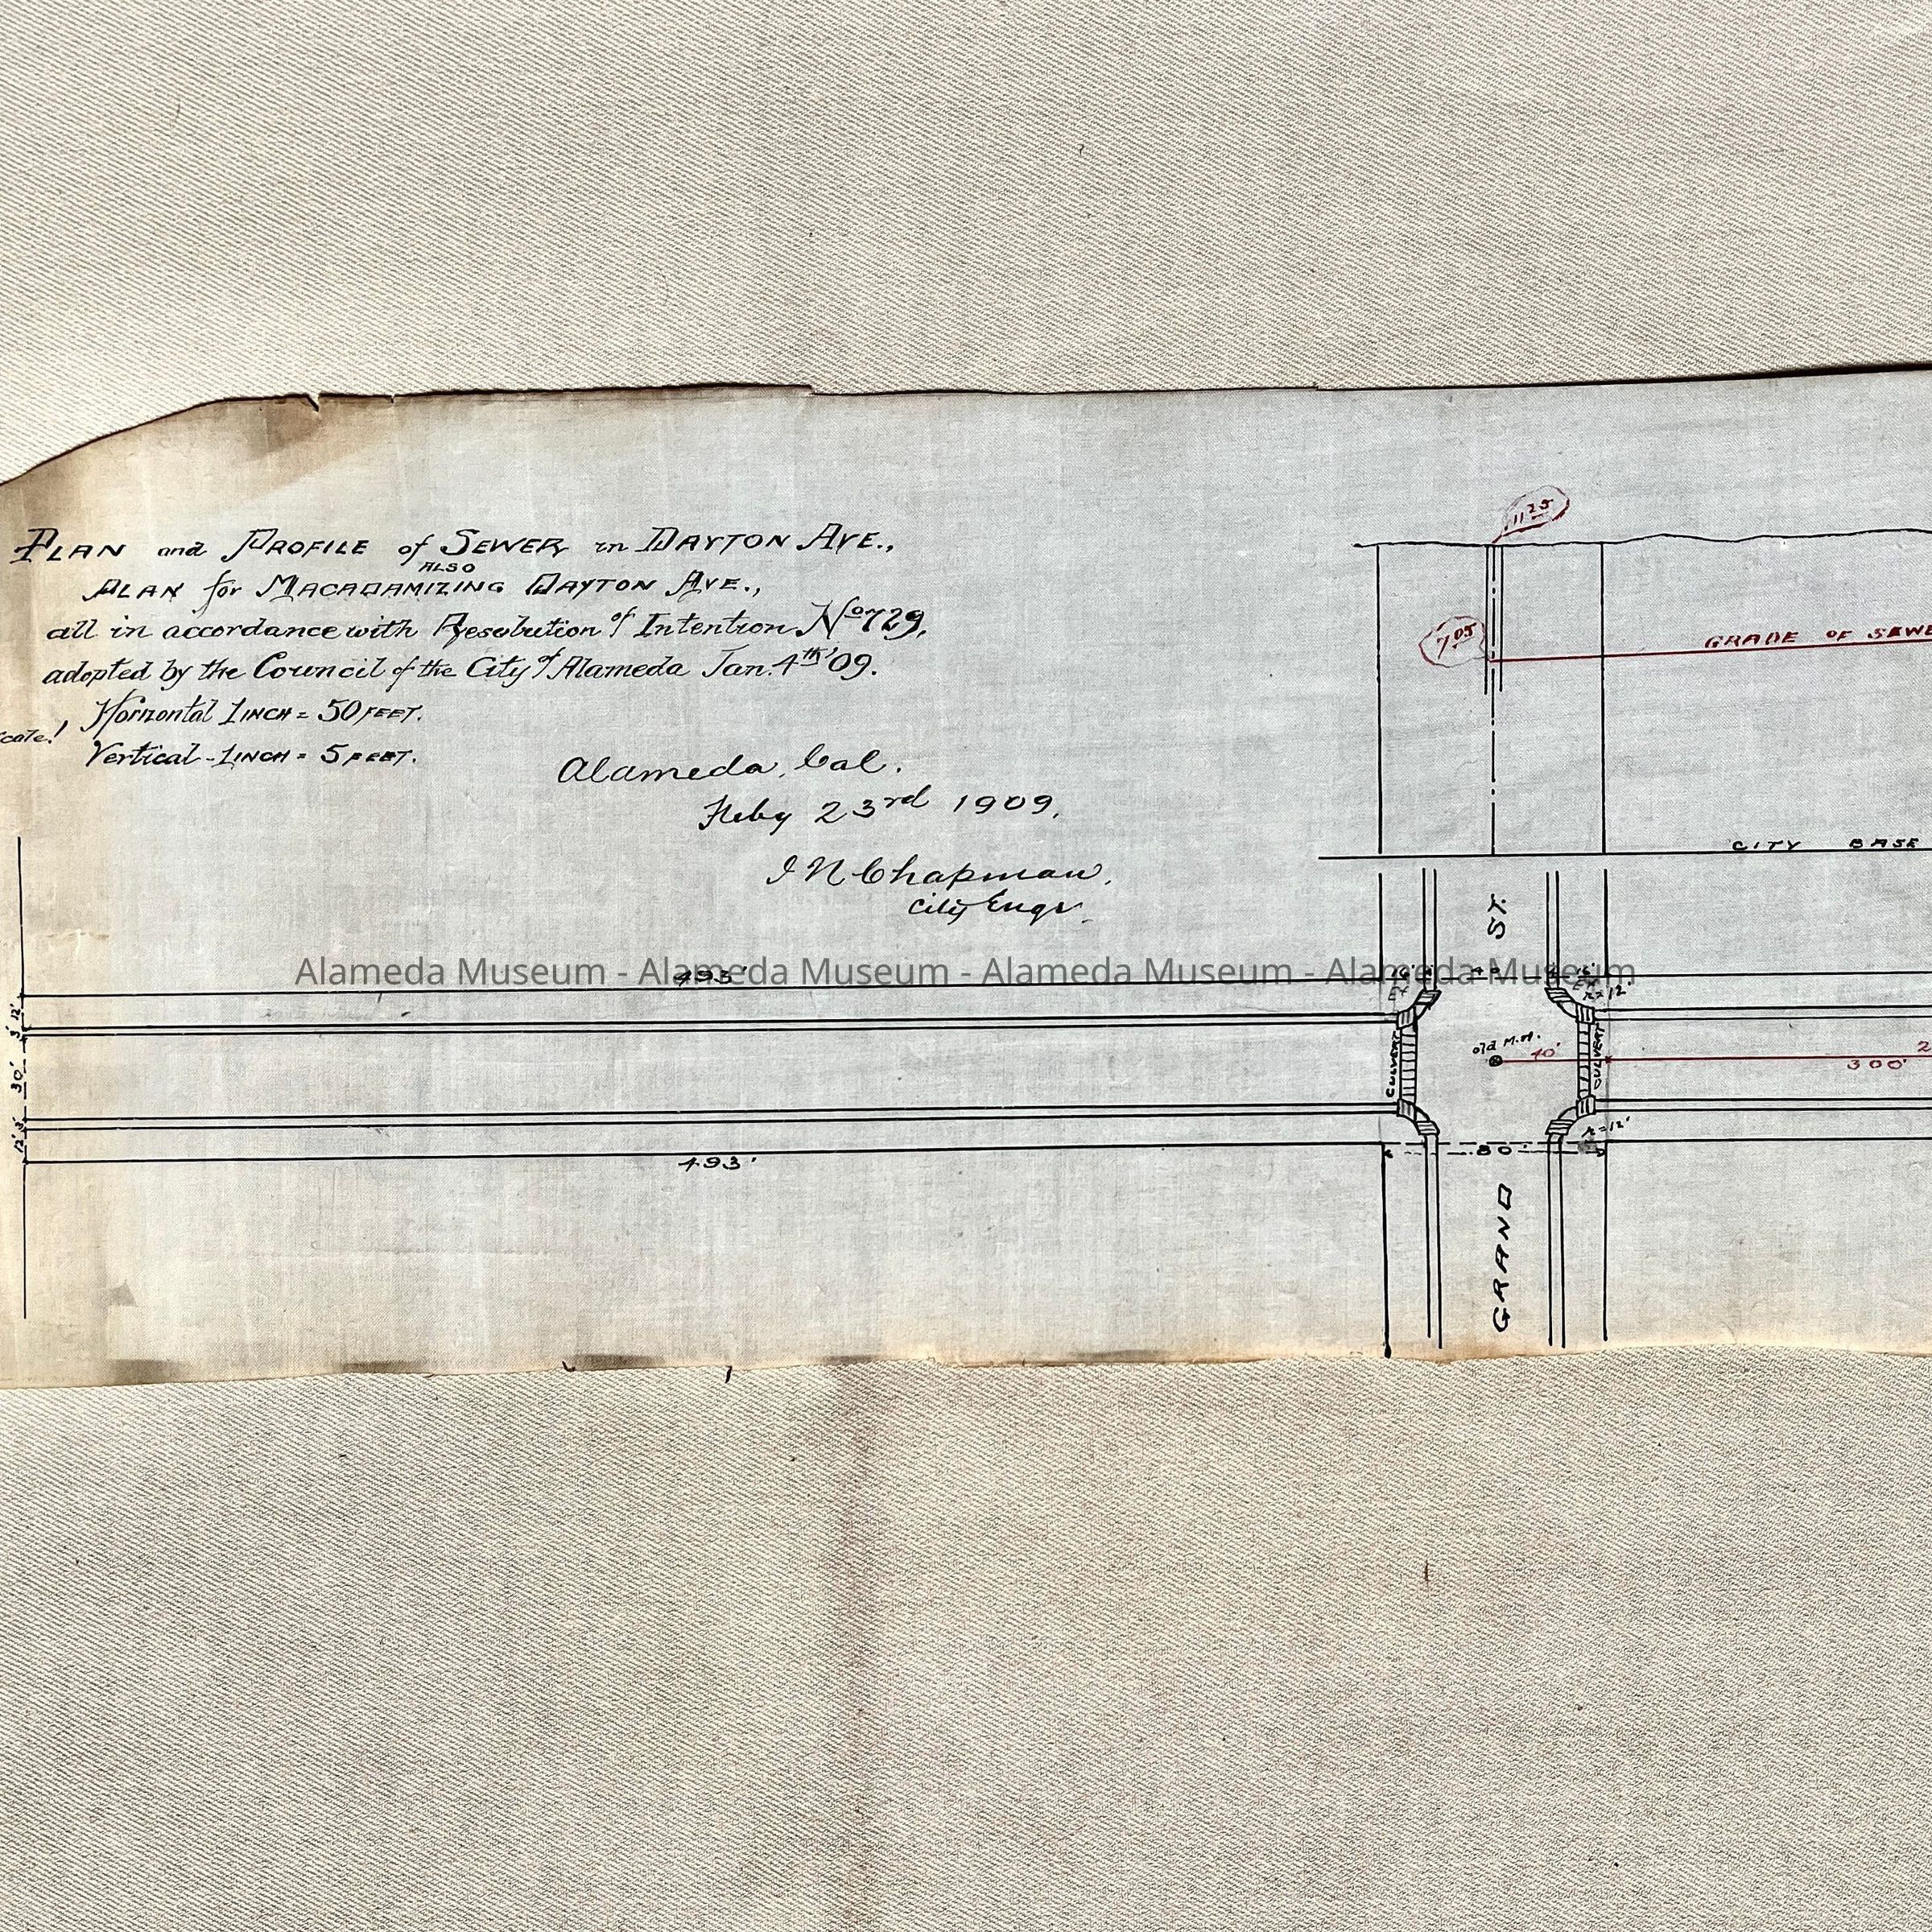 PLAN and PROFILE of SEWER in DAYTON AVE.,
ALSO
PLAN for MACADAMIZING DAYTON AVE.,
all in accordance with Resolution of Intention No 729,
adopted by the Council of the City of Alameda Jan. 4th '09.
Horizontal 1 INCH = 50 FEET.
Vertical - 1 INCH = 5 FEET.
Alameda, Cal.
Feby 23rd 1909.
I N Chapman,
City Engr.
11.25
7.05
GRADE OF SEWE
CITY BASE
ST.
Alameda Museum - Alameda Museum - Alameda Museum - Alameda Museum
493'
r=12'
12'
3'
30'
3'
12'
CULVERT
old M.H.
40'
CULVERT
2
300'
r=12'
80
493'
GRAND